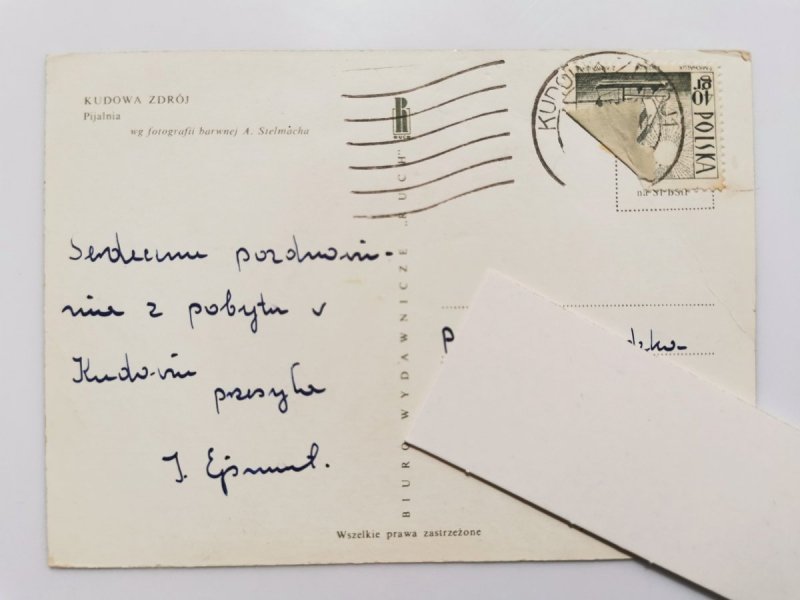 KUDOWA ZDRÓJ
Pijalnia
wg fotografii barwnej A. Stelmacha
RUCH
BIURO WYDAWNICZE „RUCH”
KUDOWA ZDRÓJ
40 gr
POLSKA
Serdeczne pozdrowie-
nia z pobytu v
Kudowie
przesyła
J. Ejsmont.
P
Wszelkie prawa zastrzeżone